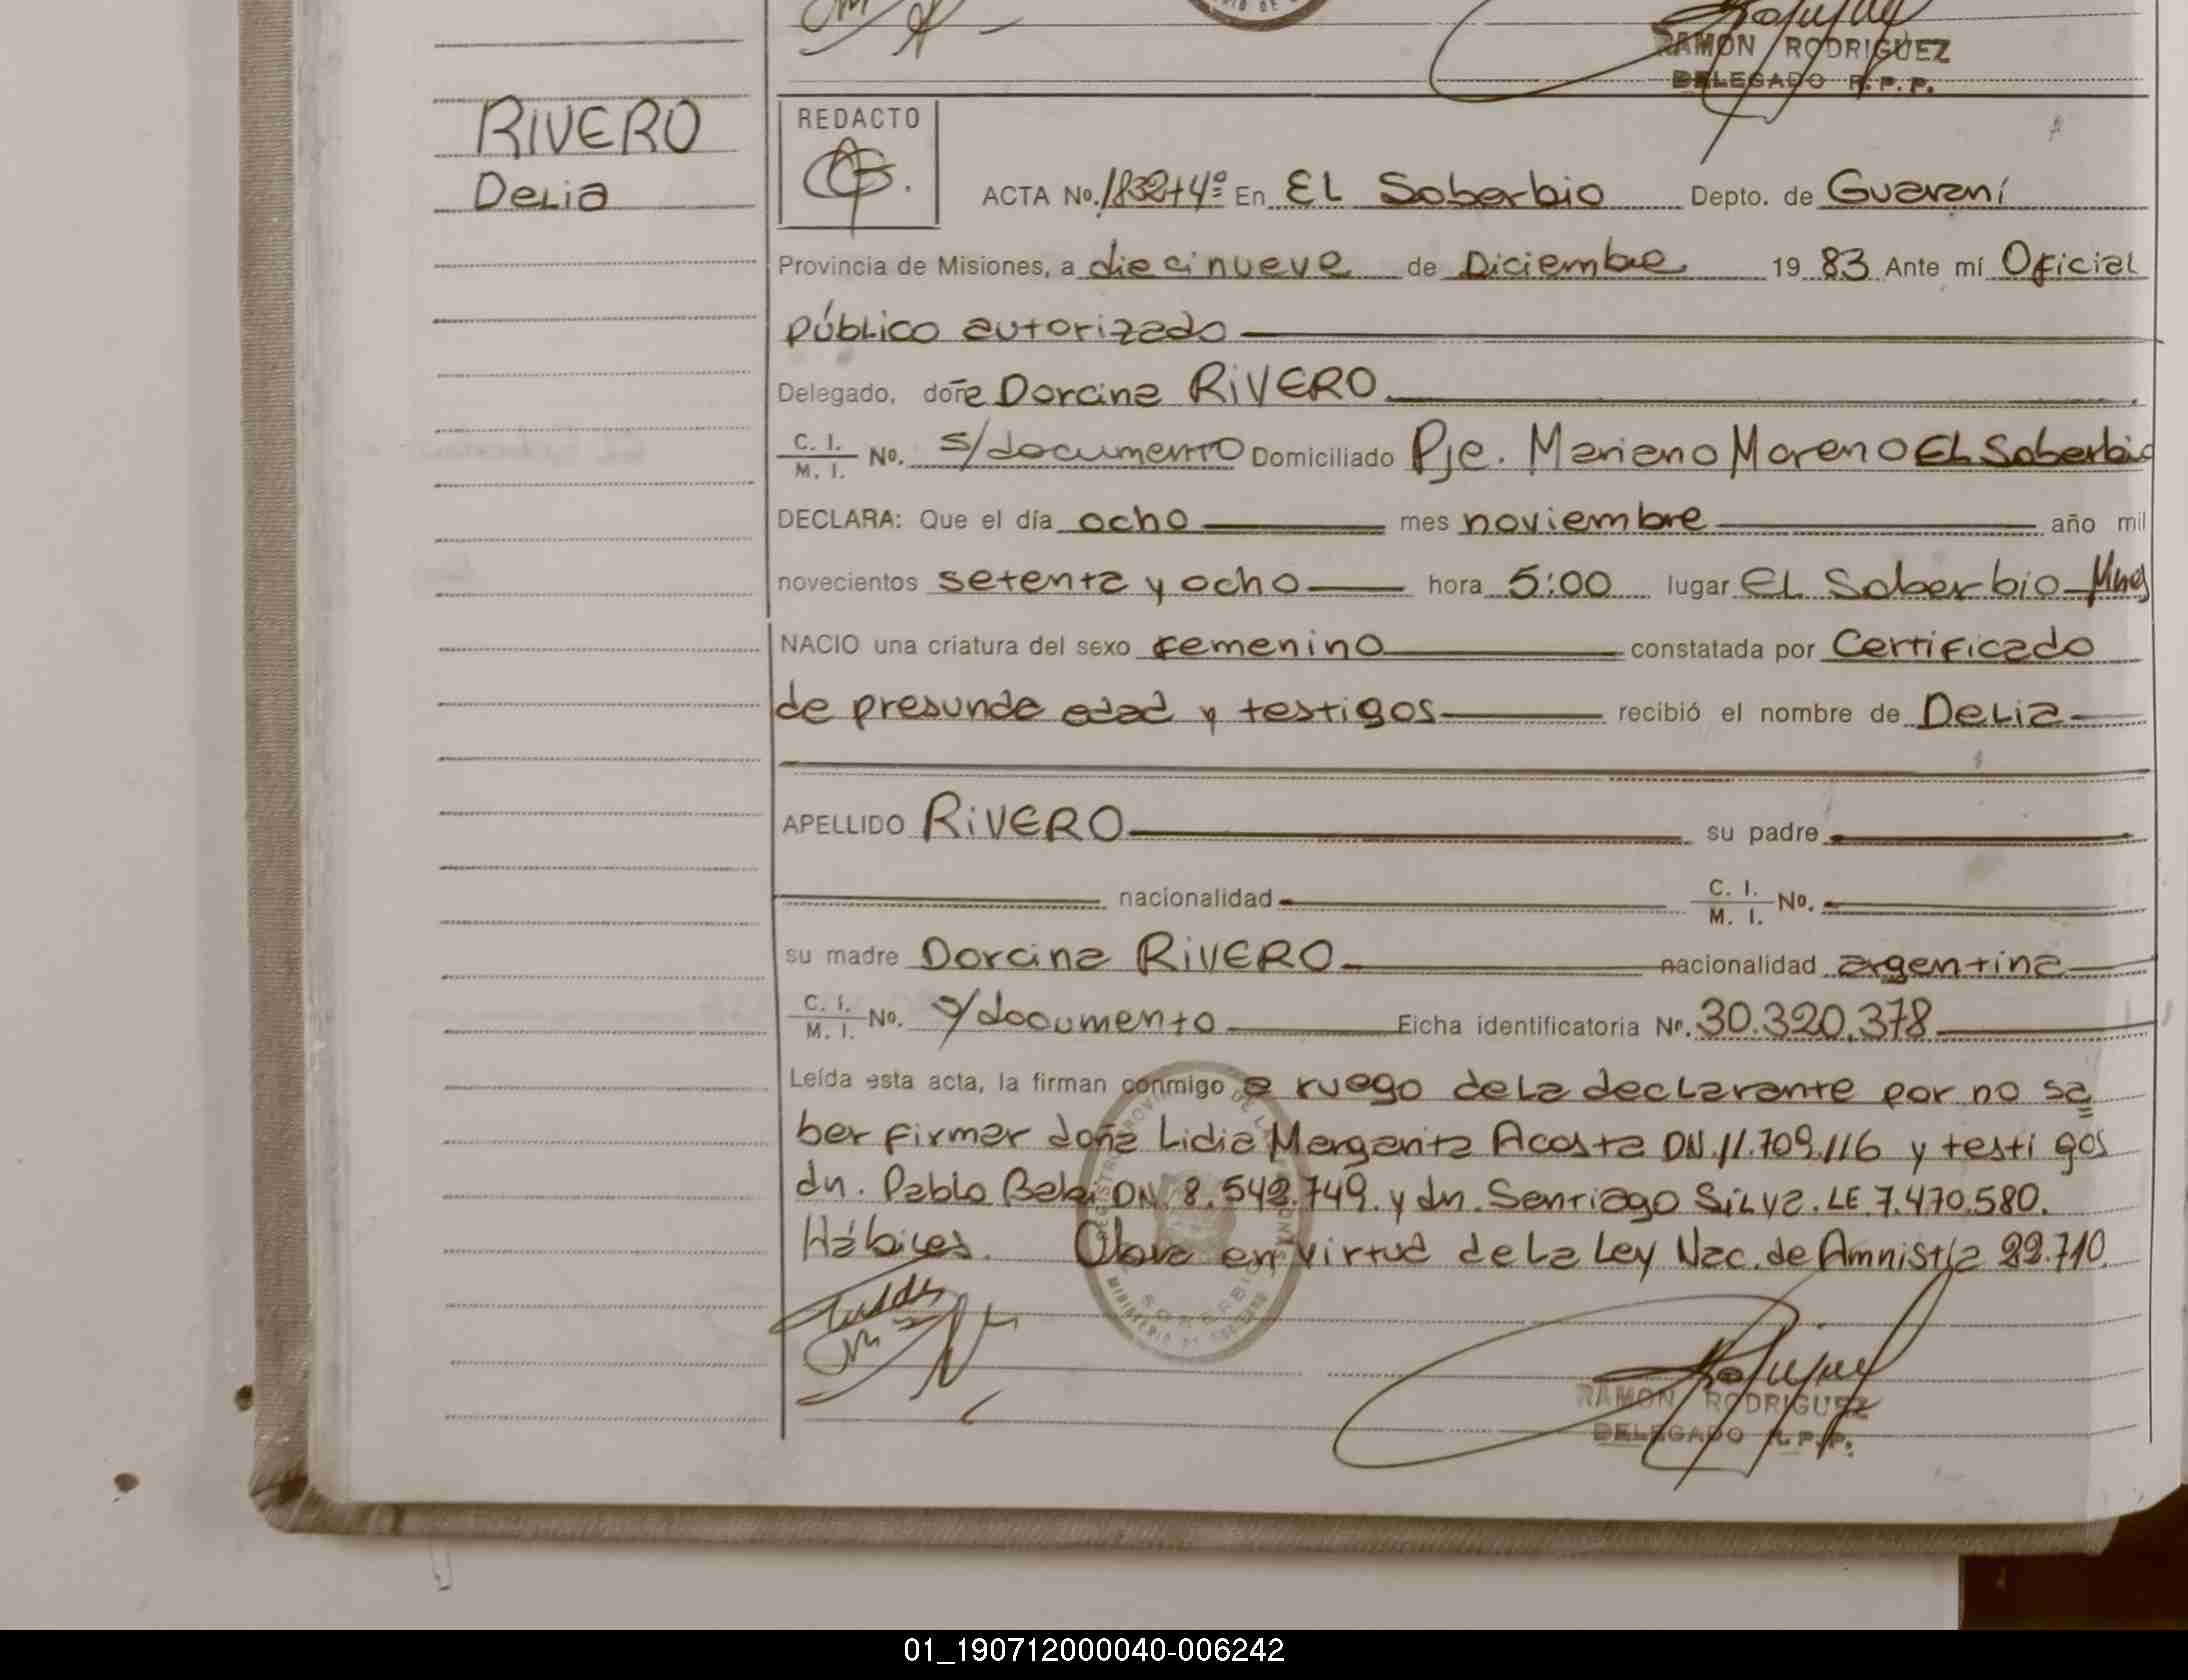 RAMON RODRIGUEZ
DELEGADO R.P.P.
RIVERO
Delia
REDACTO
ACTA No. 1832 t 4º En El Soberbio Depto. de Guaraní
Provincia de Misiones, a diecinueve de Diciembre 19 83 Ante mí Oficial
público autorizado
Delegado, doña Dorcina RIVERO
C. I. / M. I. No. s/documento Domiciliado Pje. Mariano Moreno El Soberbio
DECLARA: Que el día ocho mes noviembre año mil
novecientos setenta y ocho hora 5:00 lugar El Soberbio Mnes
NACIO una criatura del sexo femenino constatada por Certificado
de presunda edad y testigos recibió el nombre de Delia
APELLIDO RIVERO su padre
nacionalidad C. I. / M. I. No.
su madre Dorcina RIVERO nacionalidad argentina
C. I. / M. I. No. s/documento Ficha identificatoria Nº. 30.320.378
Leída esta acta, la firman conmigo a ruego de la declarante por no sa
ber firmar doña Lidia Margarita Acosta DN. 11.709.116 y testigos
dn. Pablo DN. 8.542.749. y dn. Santiago Silva. LE 7.470.580.
Hábiles. Obra en virtud de la Ley Nac. de Amnistía 22.710.
RAMON RODRIGUEZ
DELEGADO R.P.P.
01_190712000040-006242